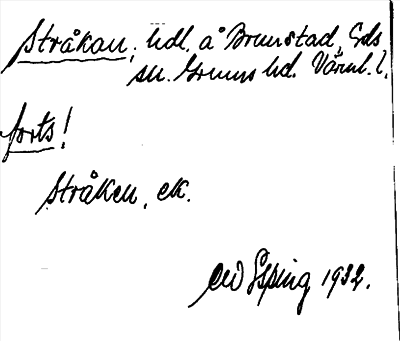 Stråkan, hdl. å Brunstad, Eds
sn. Grums hd. Värml. l.
forts!
Stråken, ek.
Esping 1932.